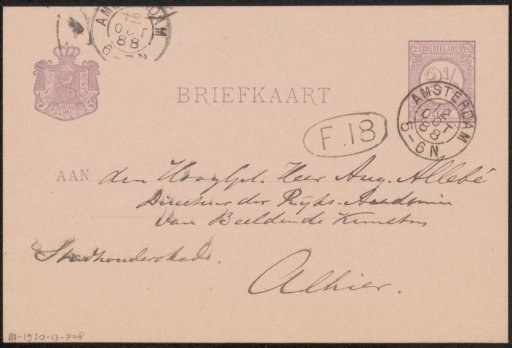 AMSTERDAM
12
OCT
88
6-7N
NEDERLAND
2½
BRIEFKAART
AMSTERDAM
12
OCT
88
5-6N
F.18
AAN den Hooglgel. Heer Aug. Allebé
Directeur der Rijks-Academie
van Beeldende Kunsten
Stadhouderskade.
Alhier.